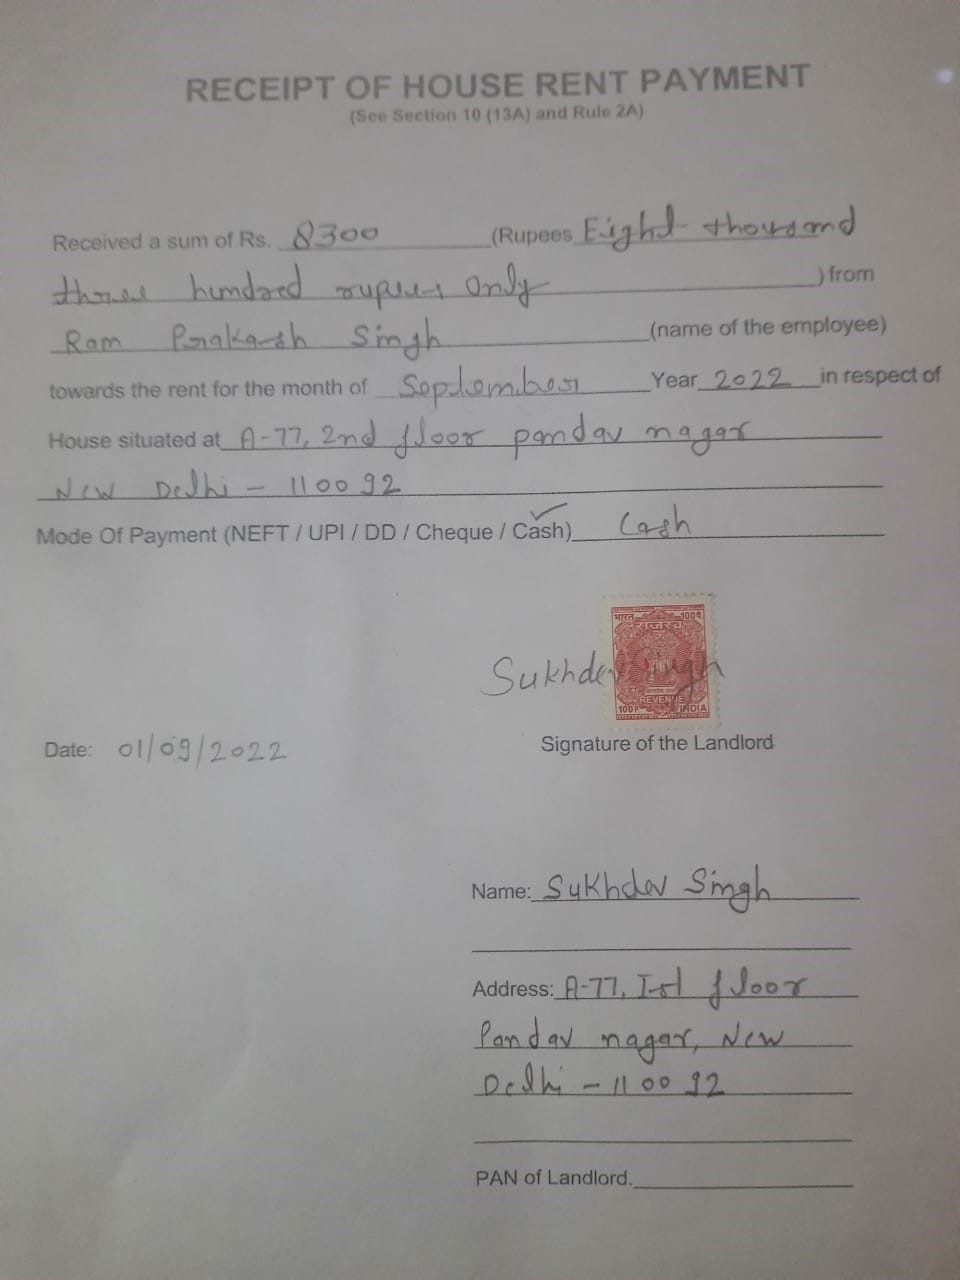 RECEIPT OF HOUSE RENT PAYMENT
(See Section 10 (13A) and Rule 2A)
Received a sum of Rs. 8300 (Rupees Eight thousand
three hundred rupees Only ) from
Ram Prakash Singh (name of the employee)
towards the rent for the month of September Year 2022 in respect of
House situated at A-77, 2nd floor pandav nagar
New Delhi - 110092
Mode Of Payment (NEFT / UPI / DD / Cheque / Cash) Cash
भारत 100प
राजस्व
Sukhdev Singh
REVENUE
100P INDIA
Signature of the Landlord
Date: 01/09/2022
Name: Sukhdev Singh
Address: A-77, Ist floor
Pandav nagar, New
Delhi - 110092
PAN of Landlord.